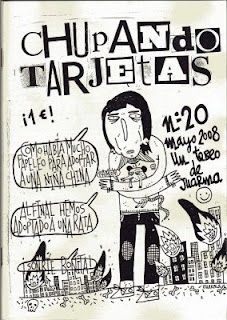 CHUPANDO
TARJETAS
¡1€!
nº:20
mayo 2008
un tebeo
de
Juarma
COMO HABÍA MUCHO
PAPELEO PARA ADOPTAR
A UNA NIÑA CHINA
AL FINAL HEMOS
ADOPTADO A UNA RATA